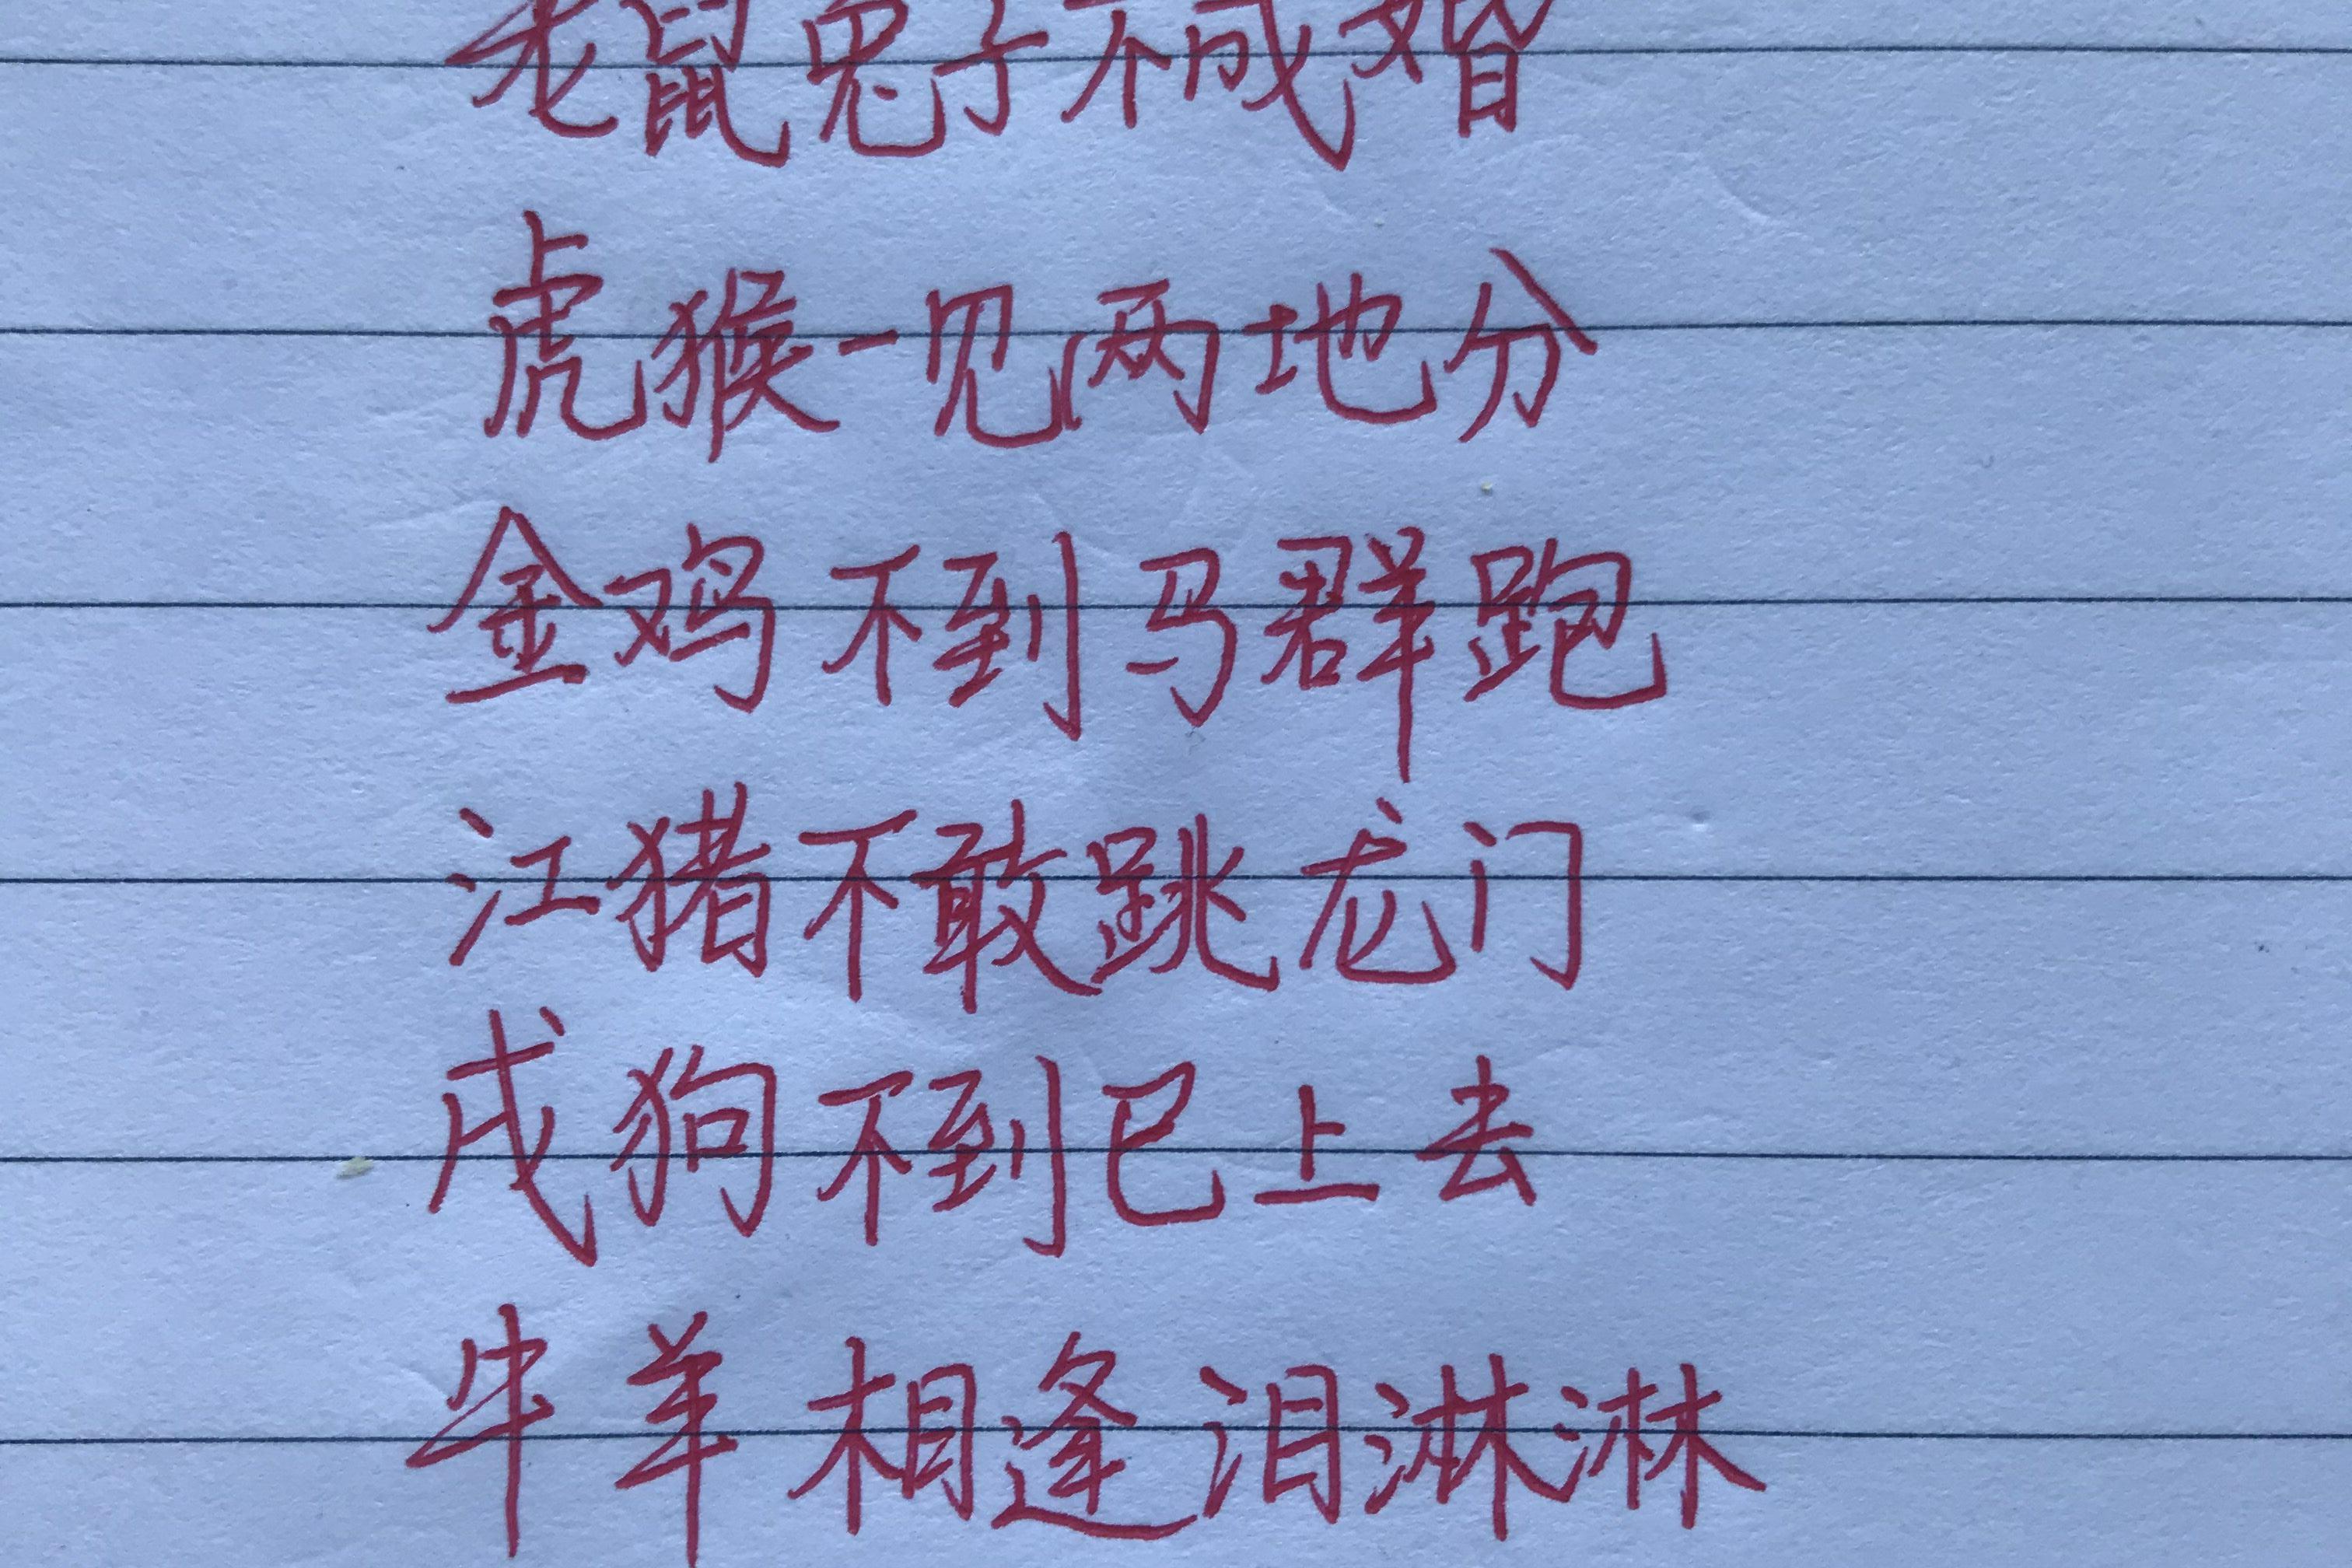 老鼠兔子不成婚
虎猴一见两地分
金鸡不到马群跑
江猪不敢跳龙门
戌狗不到巳上去
牛羊相逢泪淋淋